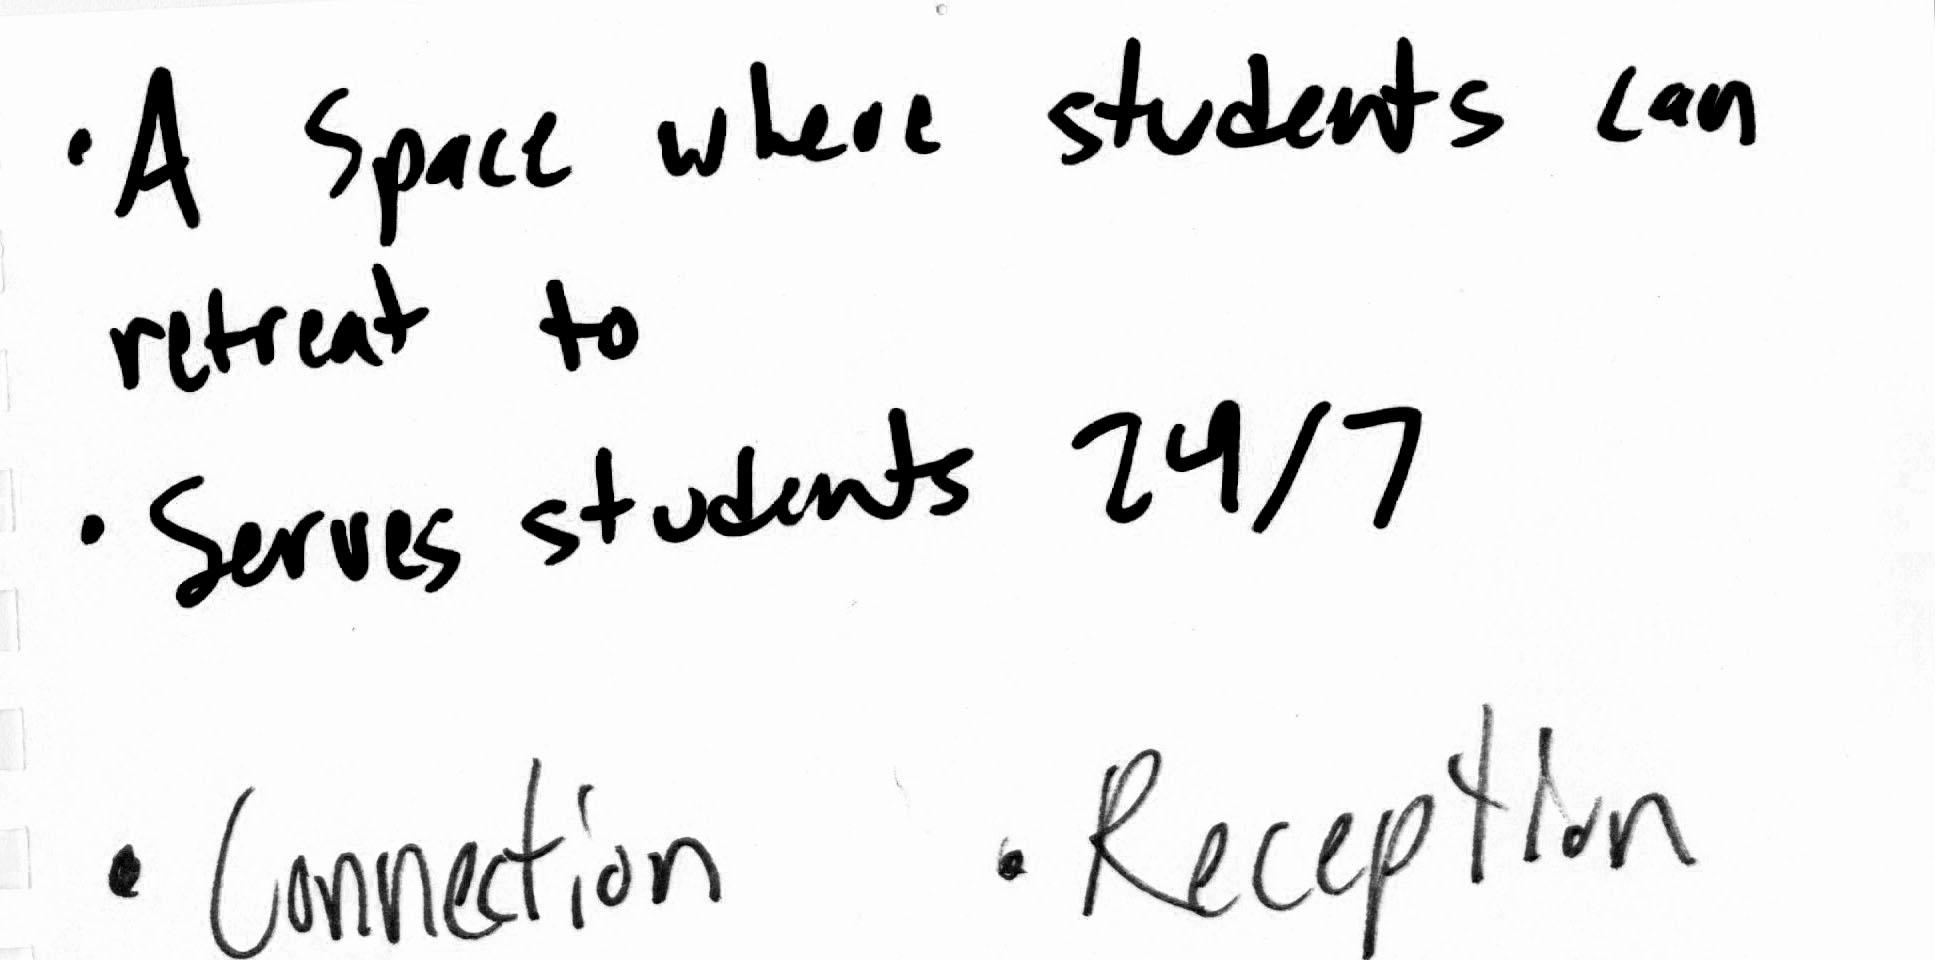 • A Space where students can
retreat to
• Serves students 24/7
• Connection • Reception